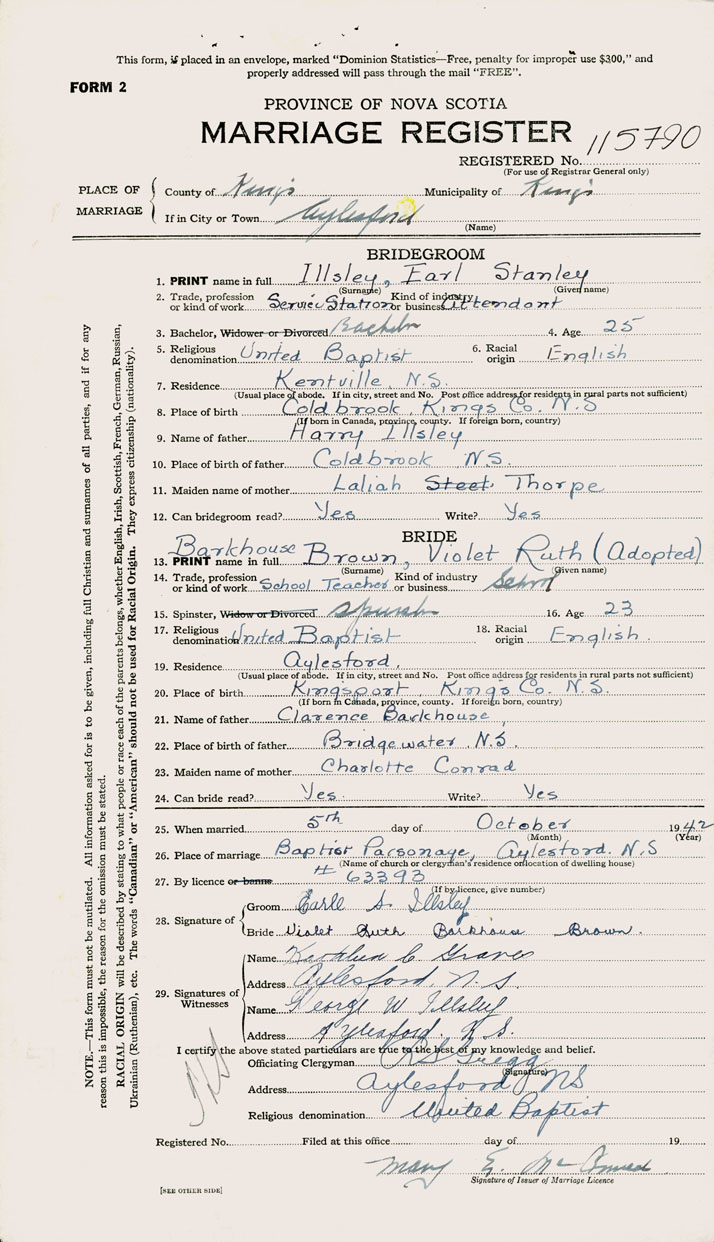 This form, if placed in an envelope, marked "Dominion Statistics—Free, penalty for improper use $300," and
properly addressed will pass through the mail "FREE".
FORM 2
PROVINCE OF NOVA SCOTIA
MARRIAGE REGISTER
REGISTERED No. 115790
(For use of Registrar General only)
PLACE OF MARRIAGE
County of Kings Municipality of Kings
If in City or Town Aylesford
(Name)
BRIDEGROOM
1. PRINT name in full Illsley, Earl Stanley
(Surname) (Given name)
2. Trade, profession or kind of work Service Station Kind of industry or business Attendant
3. Bachelor, Widower or Divorced Bachelor 4. Age 25
5. Religious denomination United Baptist 6. Racial origin English
7. Residence Kentville, N.S.
(Usual place of abode. If in city, street and No. Post office address for residents in rural parts not sufficient)
8. Place of birth Coldbrook, Kings Co. N.S
(If born in Canada, province, county. If foreign born, country)
9. Name of father Harry Illsley
10. Place of birth of father Coldbrook N.S.
11. Maiden name of mother Laliah Steet Thorpe
12. Can bridegroom read? Yes Write? Yes
BRIDE
13. PRINT name in full Barkhouse Brown, Violet Ruth (Adopted)
(Surname) (Given name)
14. Trade, profession or kind of work School Teacher Kind of industry or business School
15. Spinster, Widow or Divorced Spinster 16. Age 23
17. Religious denomination United Baptist 18. Racial origin English.
19. Residence Aylesford,
(Usual place of abode. If in city, street and No. Post office address for residents in rural parts not sufficient)
20. Place of birth Kingsport, Kings Co. N.S.
(If born in Canada, province, county. If foreign born, country)
21. Name of father Clarence Barkhouse,
22. Place of birth of father Bridgewater, N.S.
23. Maiden name of mother Charlotte Conrad
24. Can bride read? Yes. Write? Yes
25. When married 5th day of October 1942
(Month) (Year)
26. Place of marriage Baptist Parsonage, Aylesford. N.S
(Name of church or clergyman's residence or location of dwelling house)
27. By licence or banns # 63393
(If by licence, give number)
28. Signature of
Groom Earle S. Illsley
Bride Violet Ruth Barkhouse Brown.
29. Signatures of Witnesses
Name Kathlun C. Graves
Address Aylesford, N.S.
Name George W Illsley
Address Aylesford. N.S.
I certify the above stated particulars are true to the best of my knowledge and belief.
Officiating Clergyman Gregg
(Signature)
Address Aylesford NS
Religious denomination United Baptist
Registered No. Filed at this office day of 19
Mary E.
Signature of Issuer of Marriage Licence
[SEE OTHER SIDE]
NOTE.—This form must not be mutilated. All information asked for is to be given, including full Christian and surnames of all parties, and if for any
reason this is impossible, the reason for the omission must be stated.
RACIAL ORIGIN will be described by stating to what people or race each of the parents belongs, whether English, Irish, Scottish, French, German, Russian,
Ukrainian (Ruthenian), etc. The words "Canadian" or "American" should not be used for Racial Origin. They express citizenship (nationality).